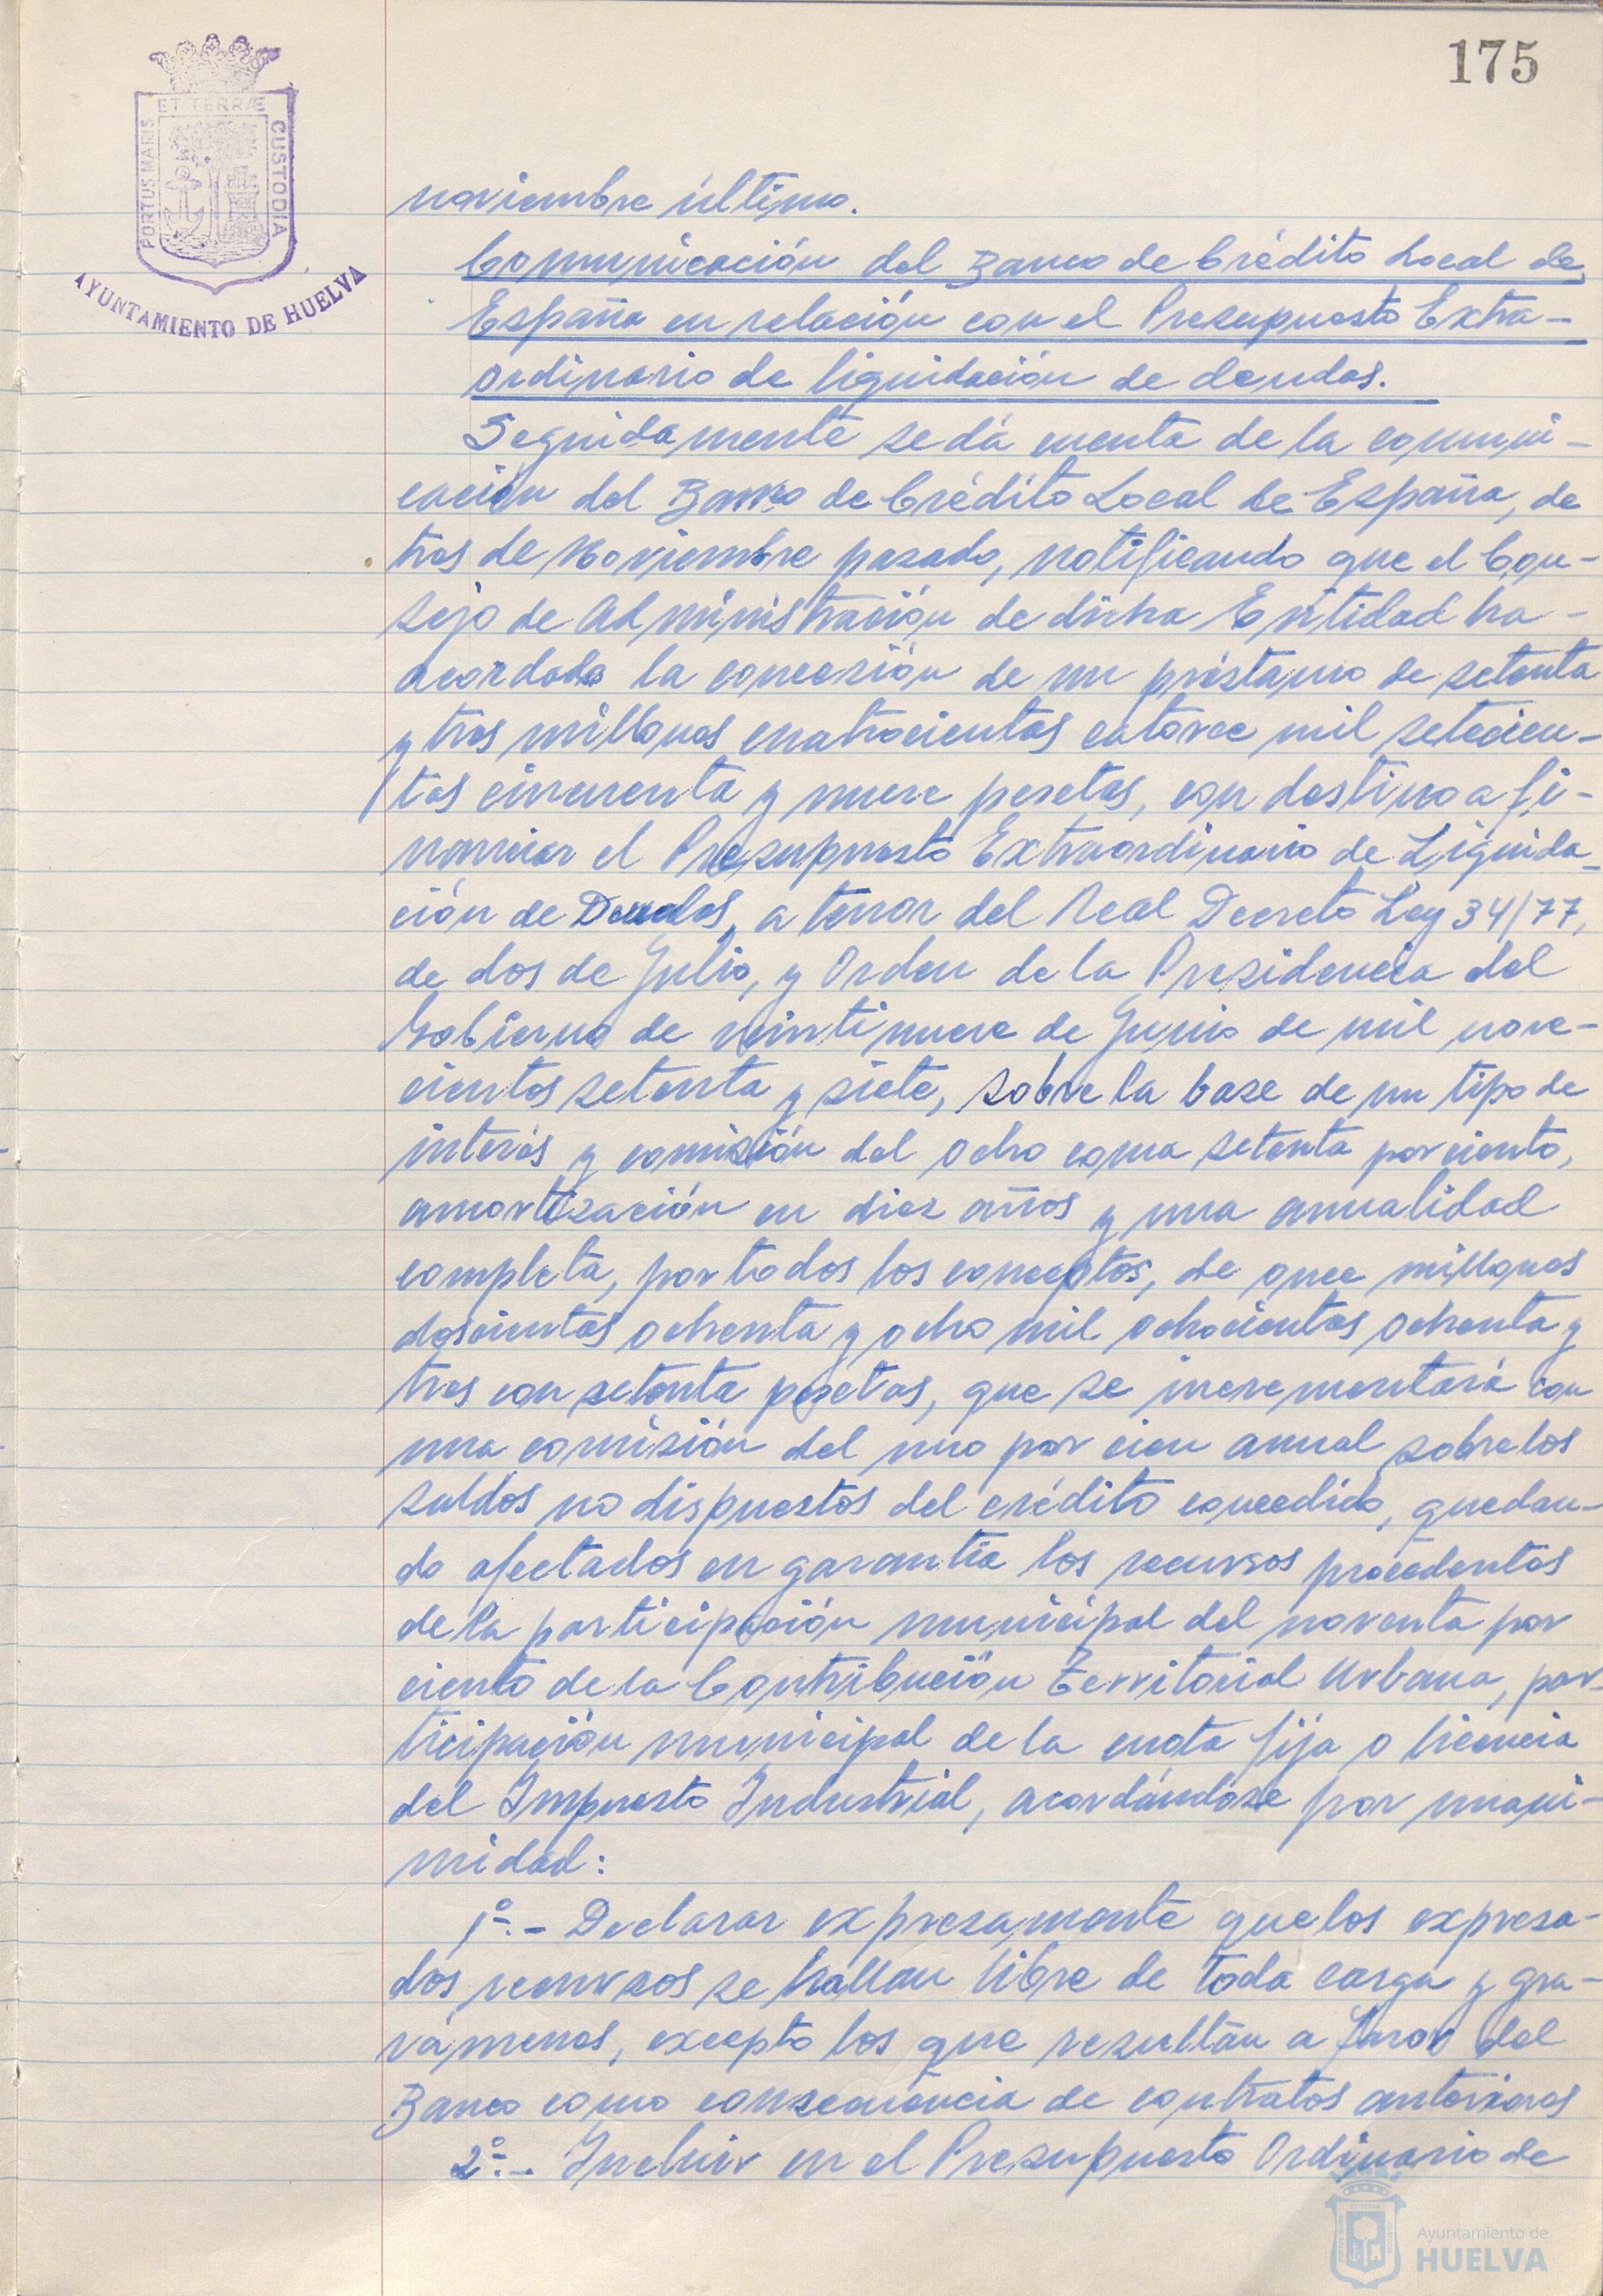 175
ET TERRÆ
PORTUS MARIS
CUSTODIA
AYUNTAMIENTO DE HUELVA
noviembre último.
Comunicación del Banco de Crédito Local de
España en relación con el Presupuesto Extra-
ordinario de liquidación de deudas.
Seguidamente se dá cuenta de la comuni-
cación del Banco de Crédito Local de España, de
tres de Noviembre pasado, notificando que el Con-
sejo de Administración de dicha Entidad ha-
acordado la concesión de un préstamo de setenta
y tres millones cuatrocientas catorce mil setecien-
tas cincuenta y nueve pesetas, con destino a fi-
nanciar el Presupuesto Extraordinario de Liquida-
ción de Deudas, a tenor del Real Decreto Ley 34/77,
de dos de Julio, y Orden de la Presidencia del
Gobierno de veintinueve de Junio de mil nove-
cientos setenta y siete, sobre la base de un tipo de
interés y comisión del ocho coma setenta por ciento,
amortización en diez años y una anualidad
completa, por todos los conceptos, de once millones
doscientas ochenta y ocho mil ochocientas ochenta y
tres con setenta pesetas, que se incrementará con
una comisión del uno por cien anual sobre los
saldos no dispuestos del crédito concedido, quedan-
do afectados en garantía los recursos procedentes
de la participación municipal del noventa por
ciento de la Contribución Territorial Urbana, par-
ticipación municipal de la cuota fija o licencia
del Impuesto Industrial, acordándose por unani-
midad:
1º.- Declarar expresamente que los expresa-
dos recursos se hallan libre de toda carga y gra-
vámenes, excepto los que resultan a favor del
Banco como consecuencia de contratos anteriores
2º.- Incluir en el Presupuesto Ordinario de
Ayuntamiento de
HUELVA